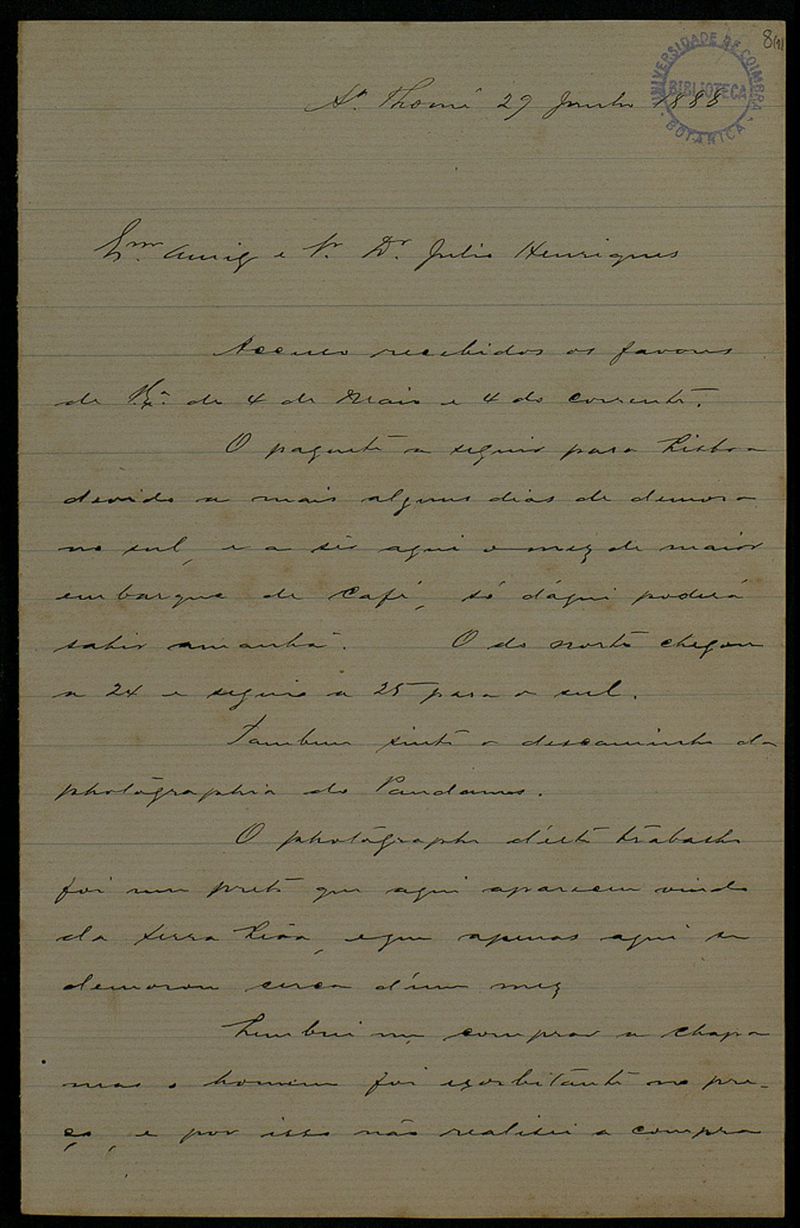 8(1)
UNIVERSIDADE DE COIMBRA
BIBLIOTECA
BOTANICA
S. Thomé 29 Junho 1888
Exmo Amigo e Sr. Dr. Julio Henriques
Accuso recebidos os favores
de V. Exa. de 4 de Maio e 4 do corrente.
O paquete a seguir para Lisboa
devido a mais alguns dias de demora
no sul, e a ser aqui o mez de maior
embarque de café, só d'aqui poderá
sahir amanhã. O do norte chegou
a 24 e seguio a 25 para o sul.
Tambem sinto o descaminho da
photographia do Pandanus.
O photographo d'este trabalho
foi um preto que aqui appareceu vindo
da Serra Leôa, e que apenas aqui se
demorou cerca d'um mez
Lembrei me comprar a chapa
mas o homem foi exorbitante no pre-
ço, e por isso não realisei a compra